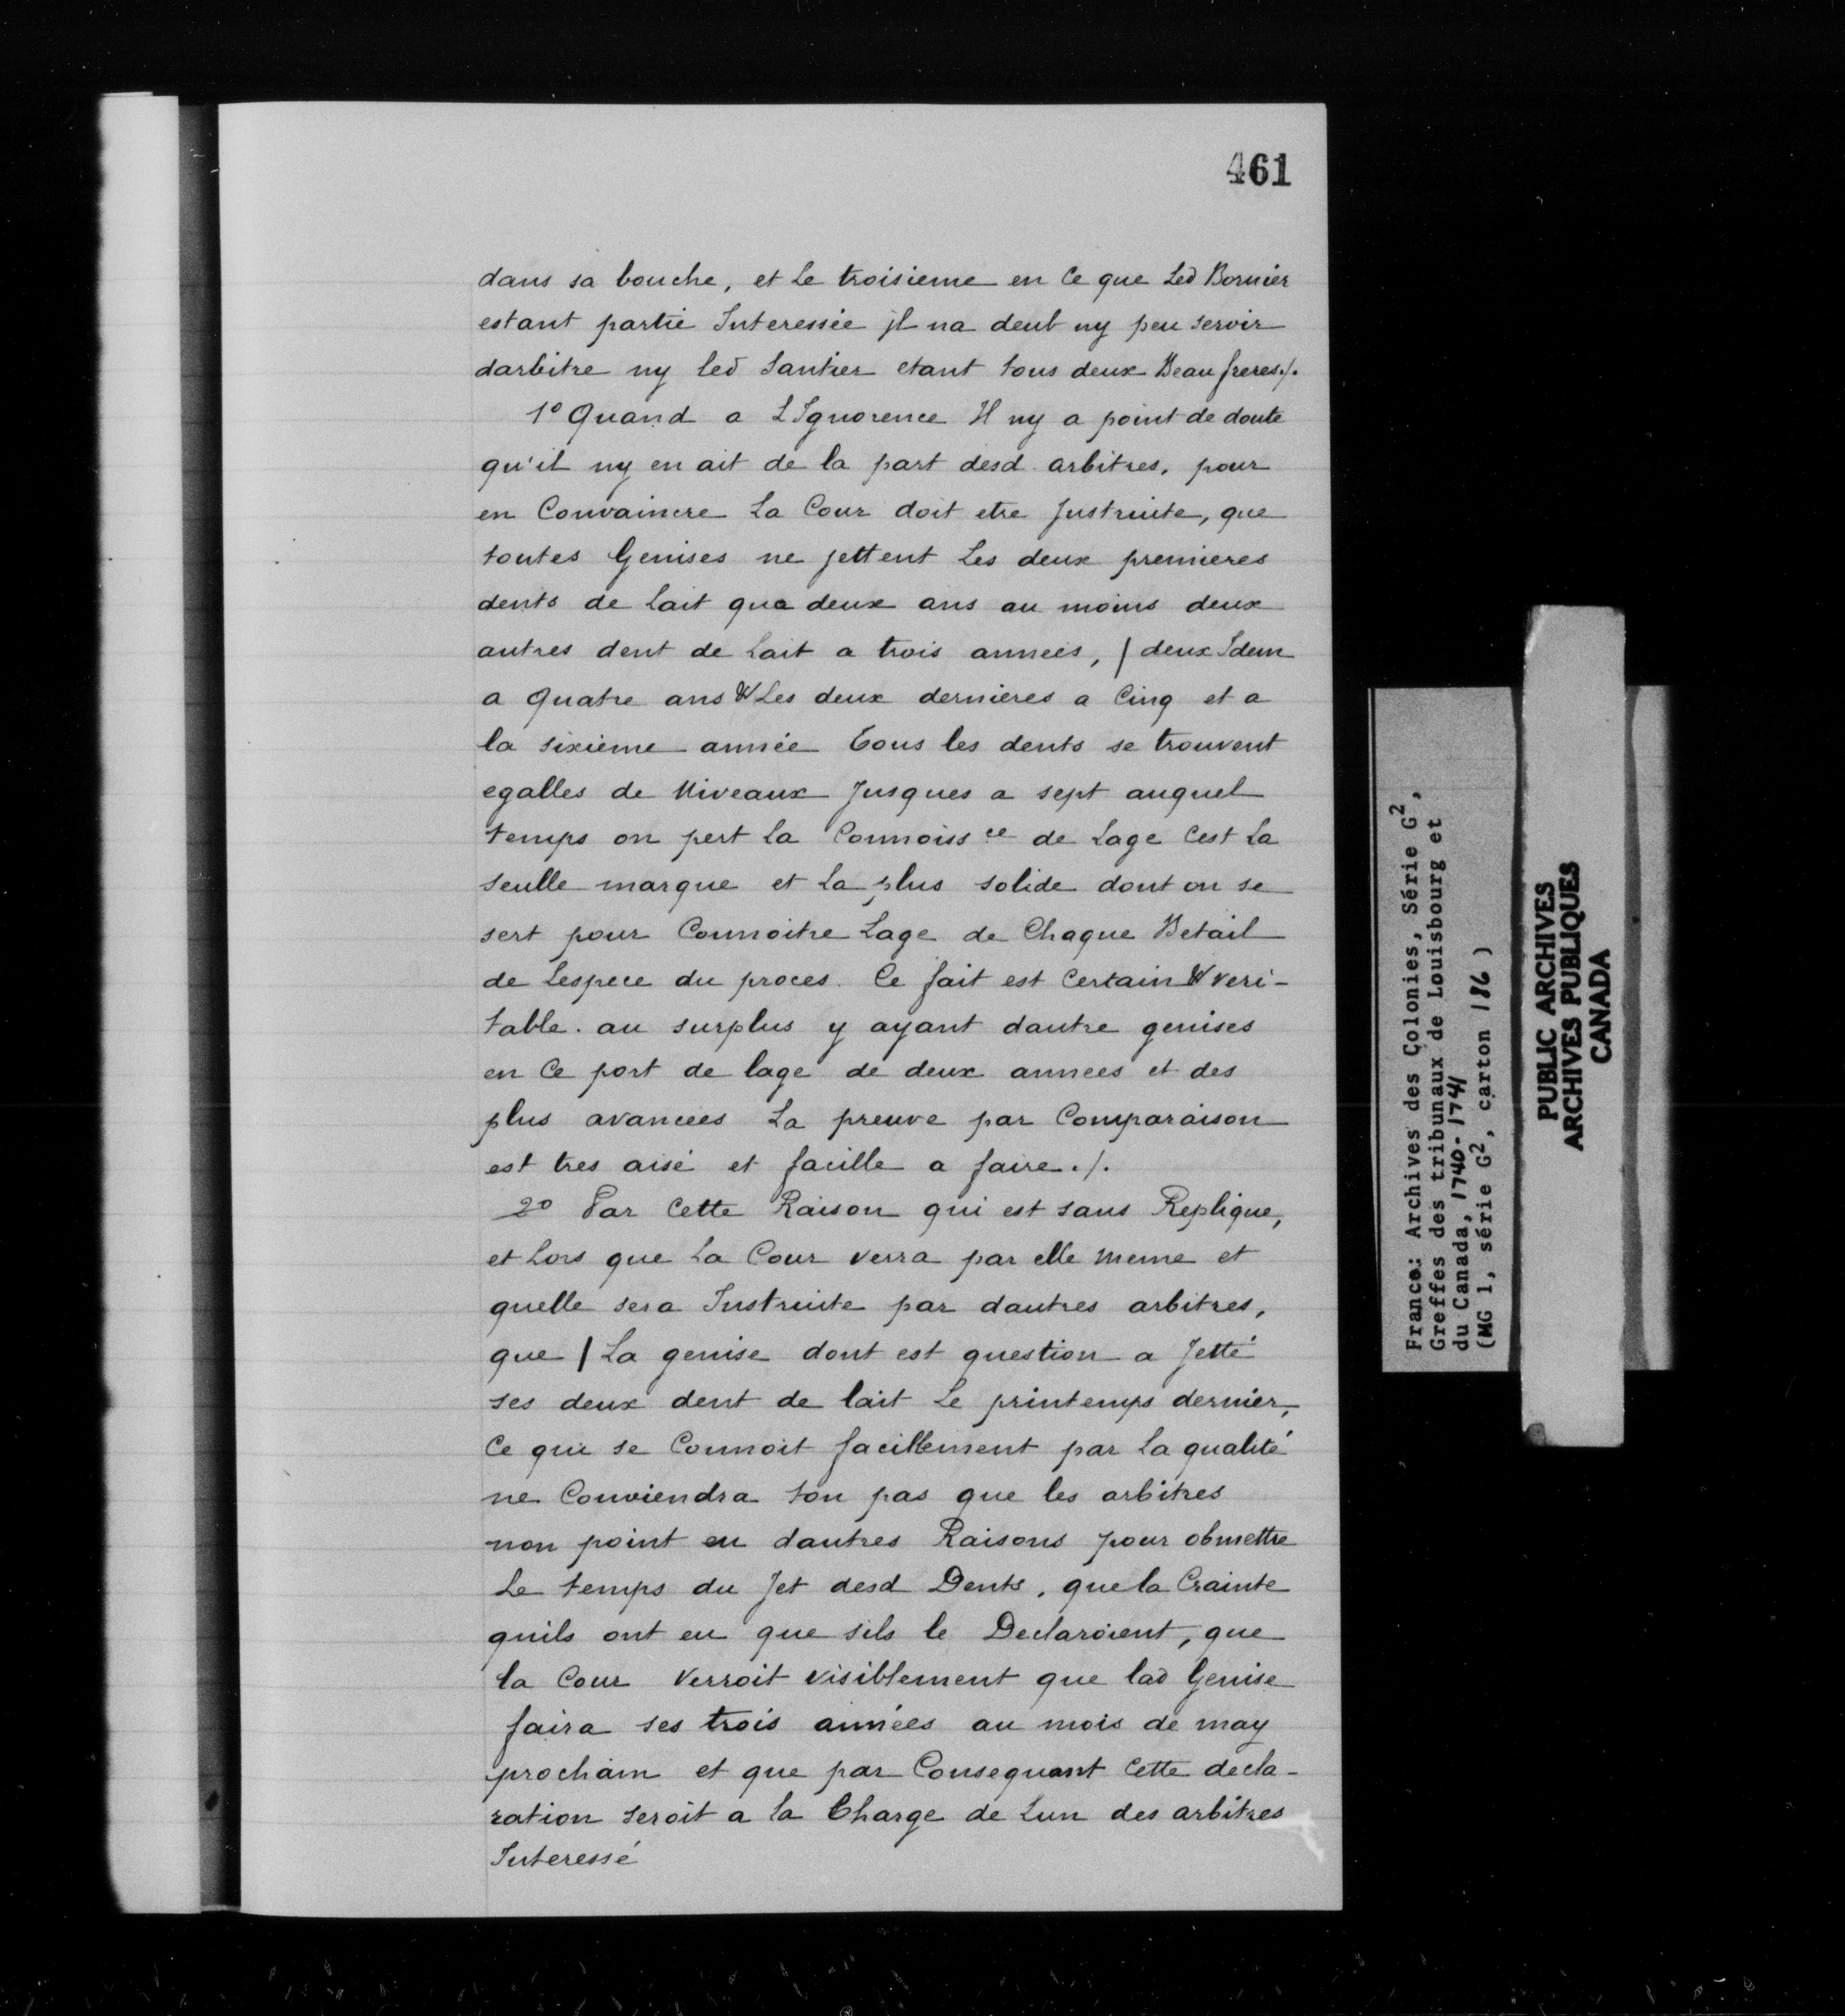 461
dans sa bouche, et Le troisieme en Ce que Led Bornier
estant partie Interessée jl na deub ny peu servir
darbitre ny led Santier etant tous deux Beau freres./.
1º Quand a L Ignorence Il ny a point de doute
qu'il ny en ait de la part desd. arbitres, pour
en Convaincre La Cour doit etre Instruite, que
toutes Genises ne jettent Les deux premieres
dents de Lait qua deux ans au moins deux
autres dent de Lait a trois années, / deux Idem
a Quatre ans & Les deux dernieres a Cinq et a
la sixieme année Tous les dents se trouvent
egalles de Niveaux Jusques a sept auquel
temps on pert La Connoiss ce de Lage Cest La
seulle marque et La plus solide dont on se
sert pour Connoitre Lage de Chaque Betail
de Lespece du proces. Ce fait est Certain & veri-
table. au surplus y ayant dautre genises
en Ce port de lage de deux annees et des
plus avancees La preuve par Comparaison
est tres aisé et facille a faire./.
2º Par Cette Raison qui est sans Replique,
et Lors que La Cour verra par elle meme et
quelle sera Instruite par dautres arbitres,
que / La genise dont est question a Jetté
ses deux dent de lait Le printemps dernier,
Ce qui se Connoit facillement par La qualité
ne Conviendra ton pas que les arbitres
non point eu dautres Raisons pour obmettre
Le temps du Jet desd Dents, que la Crainte
quils ont eu que sils le Declaroient, que
la Cour Verroit visiblement que lad Genise
faira ses trois années au mois de may
prochain et que par Consequant Cette decla-
ration seroit a la Charge de Lun des arbitres
Interessé
France: Archives des Colonies, Série G2,
Greffes des tribunaux de Louisbourg et
du Canada, 1740-1741
(MG 1, série G2, carton 186 )
PUBLIC ARCHIVES
ARCHIVES PUBLIQUES
CANADA